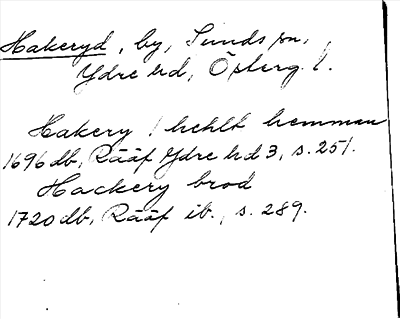 Hakeryd, by, Sunds sn,
Ydre hd, Österg. l.
Hakery ! hehlt hemman
1696 db, Rääf Ydre hd 3, s. 251.
Hackery brod
1720 db, Rääf ib., s. 289.